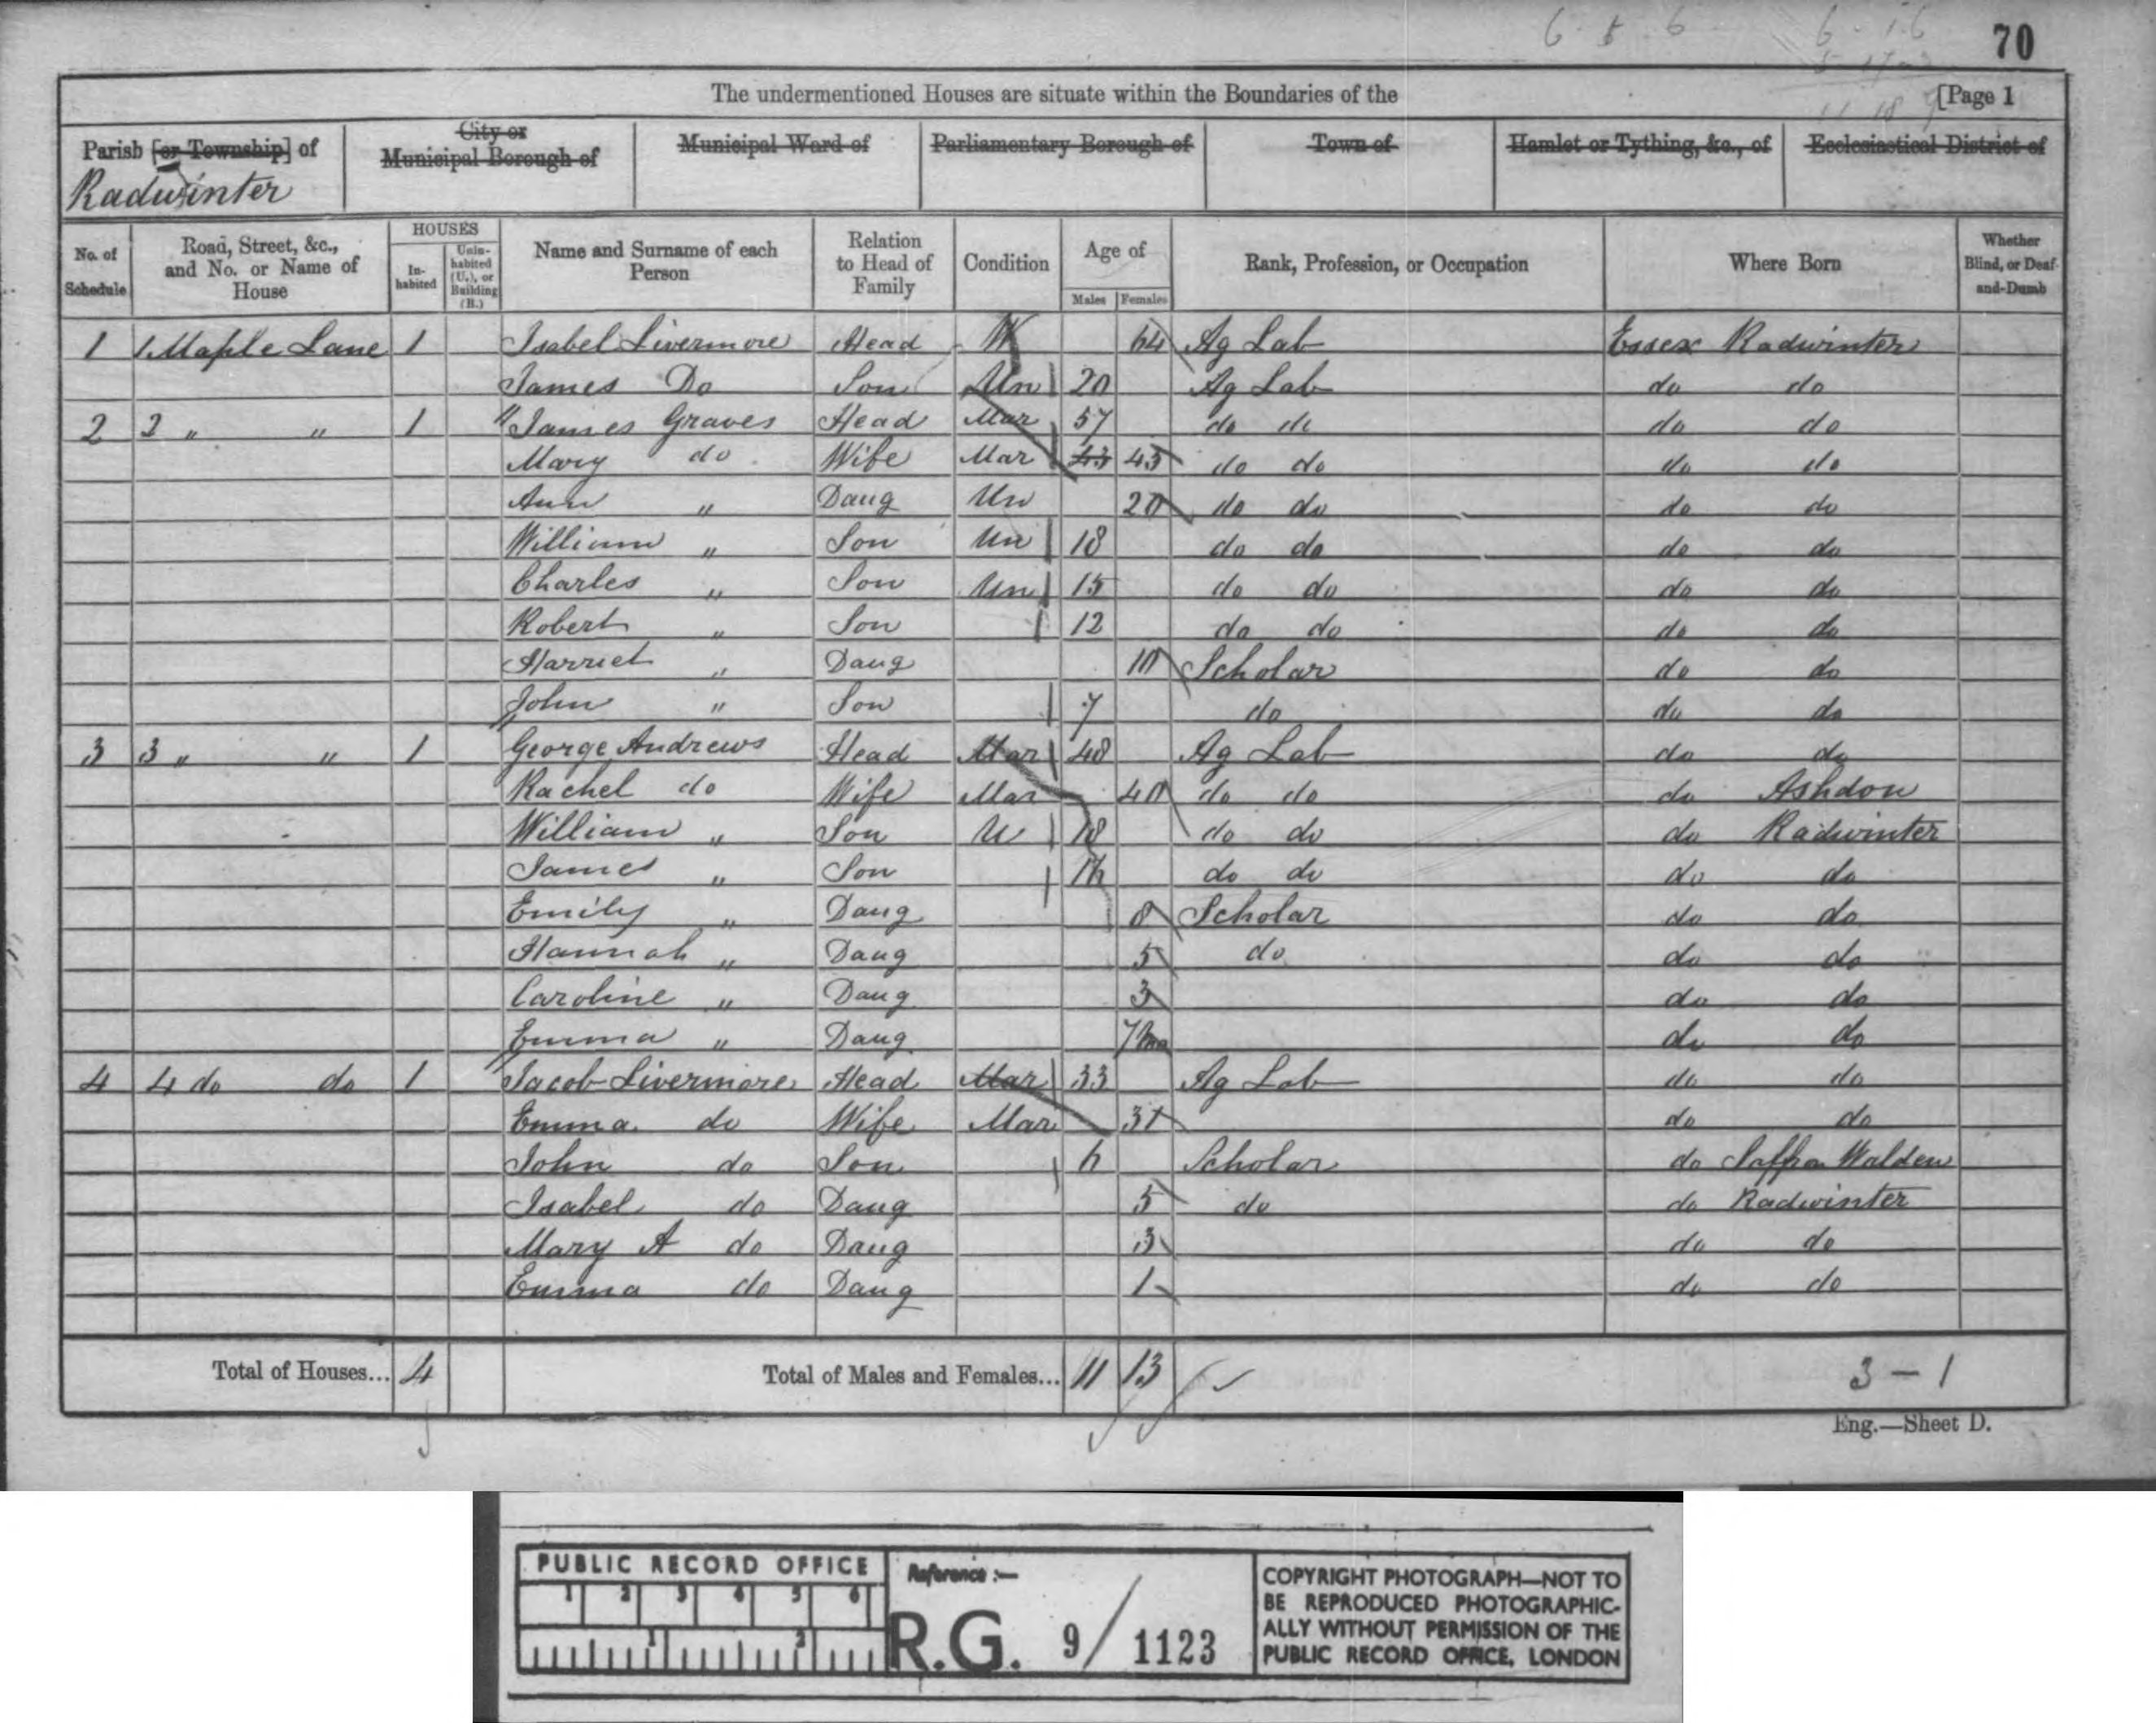 6 5 6 6 16 70
The undermentioned Houses are situate within the Boundaries of the [Page 1
Parish [or Township] of City or Municipal Borough of Municipal Ward of Parliamentary Borough of Town of Hamlet or Tything, &c., of Ecclesiastical District of
Radwinter
No. of Schedule Road, Street, &c., and No. or Name of House HOUSES Inhabited Uninhabited (U.), or Building (B.) Name and Surname of each Person Relation to Head of Family Condition Age of Males Females Rank, Profession, or Occupation Where Born Whether Blind, or Deaf-and-Dumb
1 1 Maple Lane 1 Isabel Livermore Head W 64 Ag Lab Essex Radwinter
James Do Son Un 20 Ag Lab do do
2 2 " " 1 James Graves Head Mar 57 do do do do
Mary do Wife Mar 43 43 do do do do
Ann " Daug Un 20 do do do do
William " Son Un 18 do do do do
Charles " Son Un 15 do do do do
Robert " Son 12 do do do do
Harriet " Daug 10 Scholar do do
John " Son 7 do do do
3 3 " " 1 George Andrews Head Mar 48 Ag Lab do do
Rachel do Wife Mar 40 do do do Ashdon
William " Son U 18 do do do Radwinter
James " Son 16 do do do do
Emily " Daug 8 Scholar do do
Hannah " Daug 5 do do do
Caroline " Daug 3 do do
Emma " Daug 7 mo do do
4 4 do do 1 Jacob Livermore Head Mar 33 Ag Lab do do
Emma do Wife Mar 31 do do
John do Son 6 Scholar do Saffron Walden
Isabel do Daug 5 do do Radwinter
Mary A do Daug 3 do do
Emma do Daug 1 do do
Total of Houses... 4 Total of Males and Females... 11 13 3 - 1
Eng.—Sheet D.
PUBLIC RECORD OFFICE
1 2 3 4 5 6
1 2
Reference :—
R.G. 9/1123
COPYRIGHT PHOTOGRAPH—NOT TO
BE REPRODUCED PHOTOGRAPHIC-
ALLY WITHOUT PERMISSION OF THE
PUBLIC RECORD OFFICE, LONDON